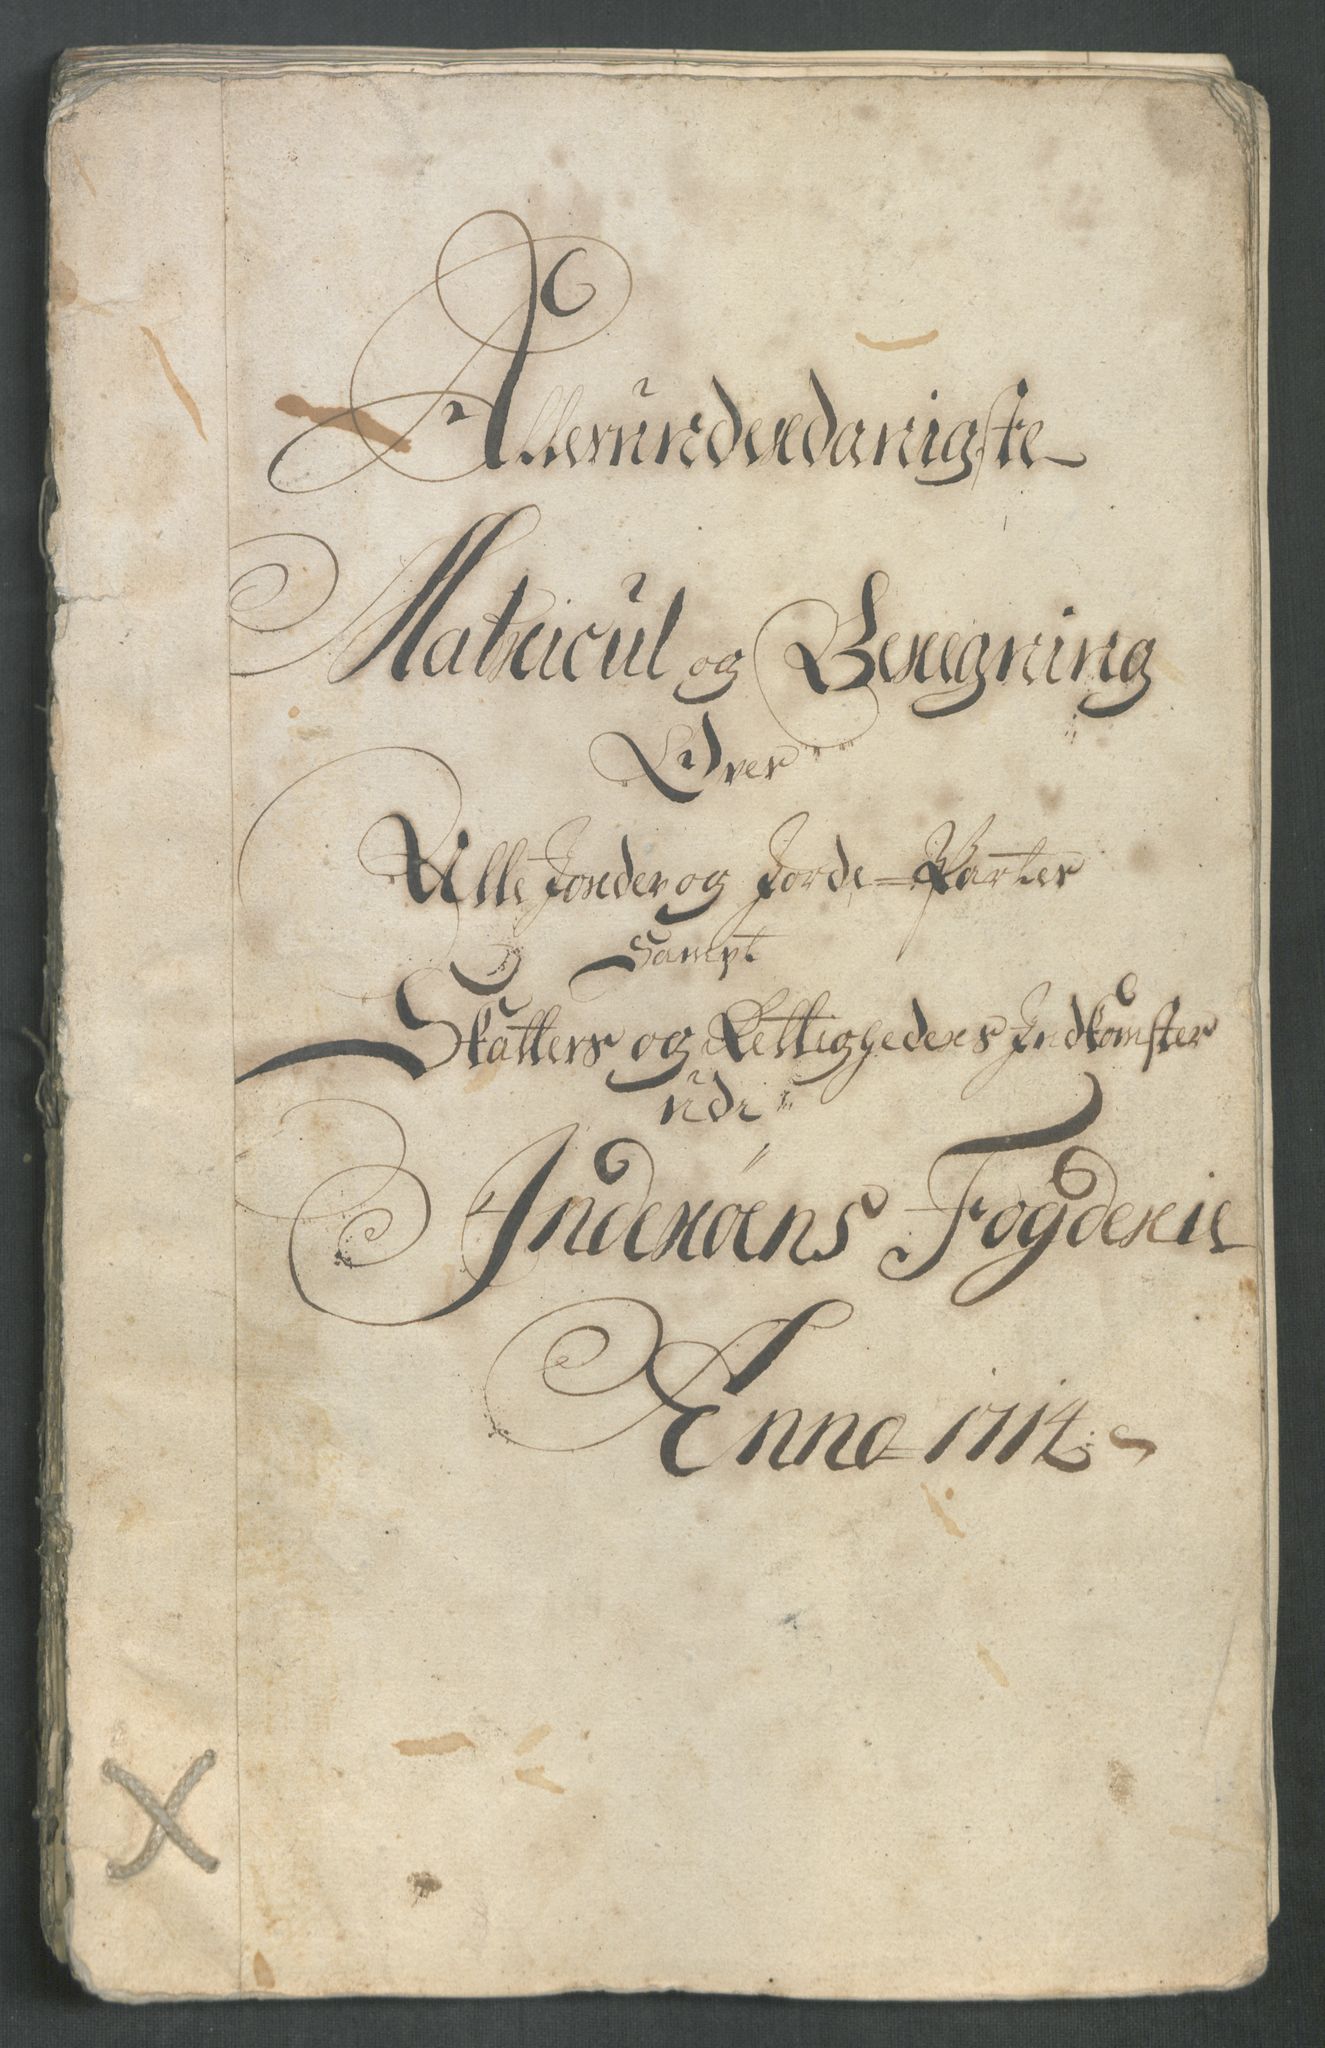 Allerunderdanigste
Matricul og Beregning
Over
Alle Jorder og Jorde=Parter
Sampt
Skatters og Rettigheders Indkomster
udi
Inderøens Fogderie
Anno 1714